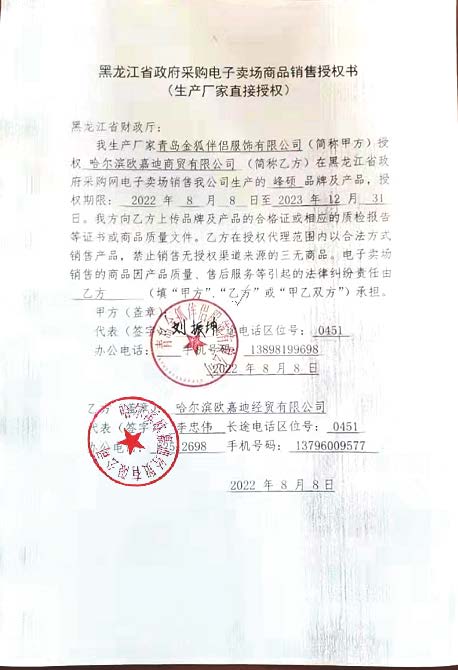 黑龙江省政府采购电子卖场商品销售授权书
(生产厂家直接授权)
黑龙江省财政厅:
我生产厂家青岛金狐伴侣服饰有限公司(简称甲方)授
权 哈尔滨欧嘉迪商贸有限公司 (简称乙方)在黑龙江省政
府采购网电子卖场销售我公司生产的 峰硕 品牌及产品,授
权期限: 2022 年 8 月 8 日至 2023 年 12 月 31
日。我方向乙方上传品牌及产品的合格证或相应的质检报告
等证书或商品质量文件。乙方在授权代理范围内以合法方式
销售产品,禁止销售无授权渠道来源的三无商品。电子卖场
销售的商品因产品质量、售后服务等引起的法律纠纷责任由
乙方 (填“甲方”、“乙方”或“甲乙双方”)承担。
甲方(盖章):
代表(签字):刘振坤 长途电话区位号: 0451
办公电话: 手机号码: 13898199698
2022 年 8 月 8 日
乙方 盖章): 哈尔滨欧嘉迪经贸有限公司
代表(签字 李忠伟 长途电话区位号: 0451
办公电话: 2698 手机号码: 13796009577
2022 年 8 月 8 日